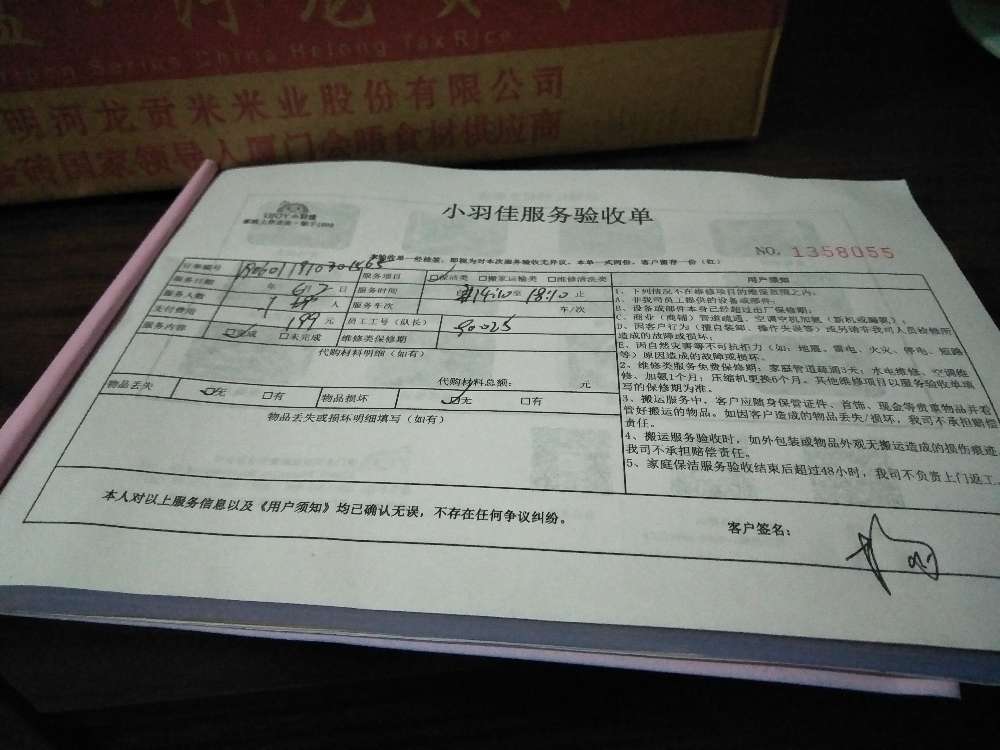 河龙贡
Series China Helong Tax Rice
明河龙贡米米业股份有限公司
金砖国家领导人厦门会晤食材供应商
小羽佳服务验收单
NO. 1358055
本验收单一经检签，即视为对本次服务验收无异议。本单一式两份，客户留存一份（红）
订单编号 服务项目 □保洁类 □搬家运输类 □维修清洗类
服务日期 年 日 服务时间 14:10 至 18:10 止
服务人数 1 人 服务车次 车/次
支付费用 199 元 员工工号（队长） 90025
服务内容 □完成 □未完成 维修类保修期
代购材料明细（如有）
代购材料总额： 元
物品丢失 ☑无 □有 物品损坏 ☑无 □有
物品丢失或损坏明细填写（如有）
用户须知
1、下列情况不在维修项目的维保范围之内：
A、非我司员工提供的设备或部件；
B、设备或部件本身已经超过出厂保修期；
C、商业（商铺）管道疏通，空调空机加氟（新机或漏氟）
D、因客户行为（擅自装卸、操作失误等）或另请非我司人员检修所
造成的故障或损坏；
E、因自然灾害等不可抗拒力（如：地震、雷电、火灾、停电、短路
等）原因造成的故障或损坏。
2、维修类服务免费保修期：家庭管道疏通3天；水电维修、空调维
修、加氟1个月；压缩机更换6个月。其他维修项目以服务验收单填
写的保修期为准。
3、搬运服务中，客户应随身保管证件、首饰、现金等贵重物品并看
管好搬运的物品。如因客户造成的物品丢失/损坏，我司不承担赔偿
责任。
4、搬运服务验收时，如外包装或物品外观无搬运造成的损伤痕迹，
我司不承担赔偿责任。
5、家庭保洁服务验收结束后超过48小时，我司不负责上门返工。
本人对以上服务信息以及《用户须知》均已确认无误，不存在任何争议纠纷。
客户签名：